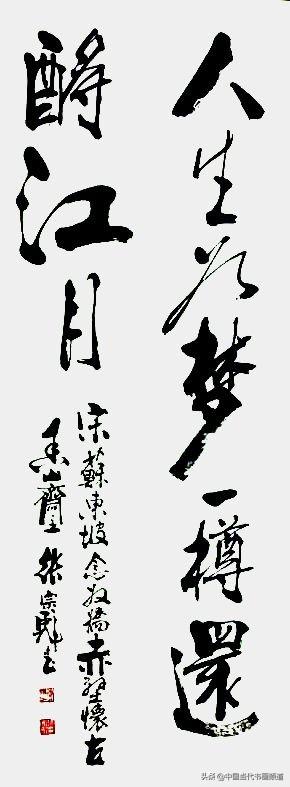 人生为梦一樽還
酹江月
宋蘇東坡念奴嬌赤壁懷古
山齋 徐宗书
头条 @中国当代书画频道